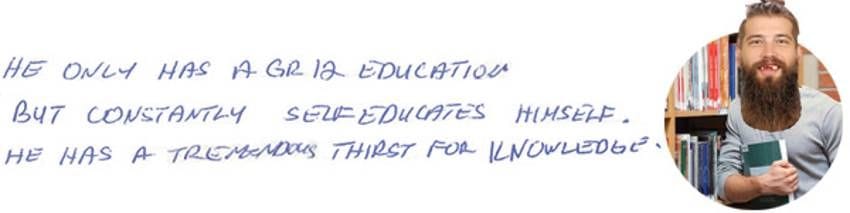 HE ONLY HAS A GR 12 EDUCATION
BUT CONSTANTLY SELF EDUCATES HIMSELF.
HE HAS A TREMENDOUS THIRST FOR KNOWLEDGE.